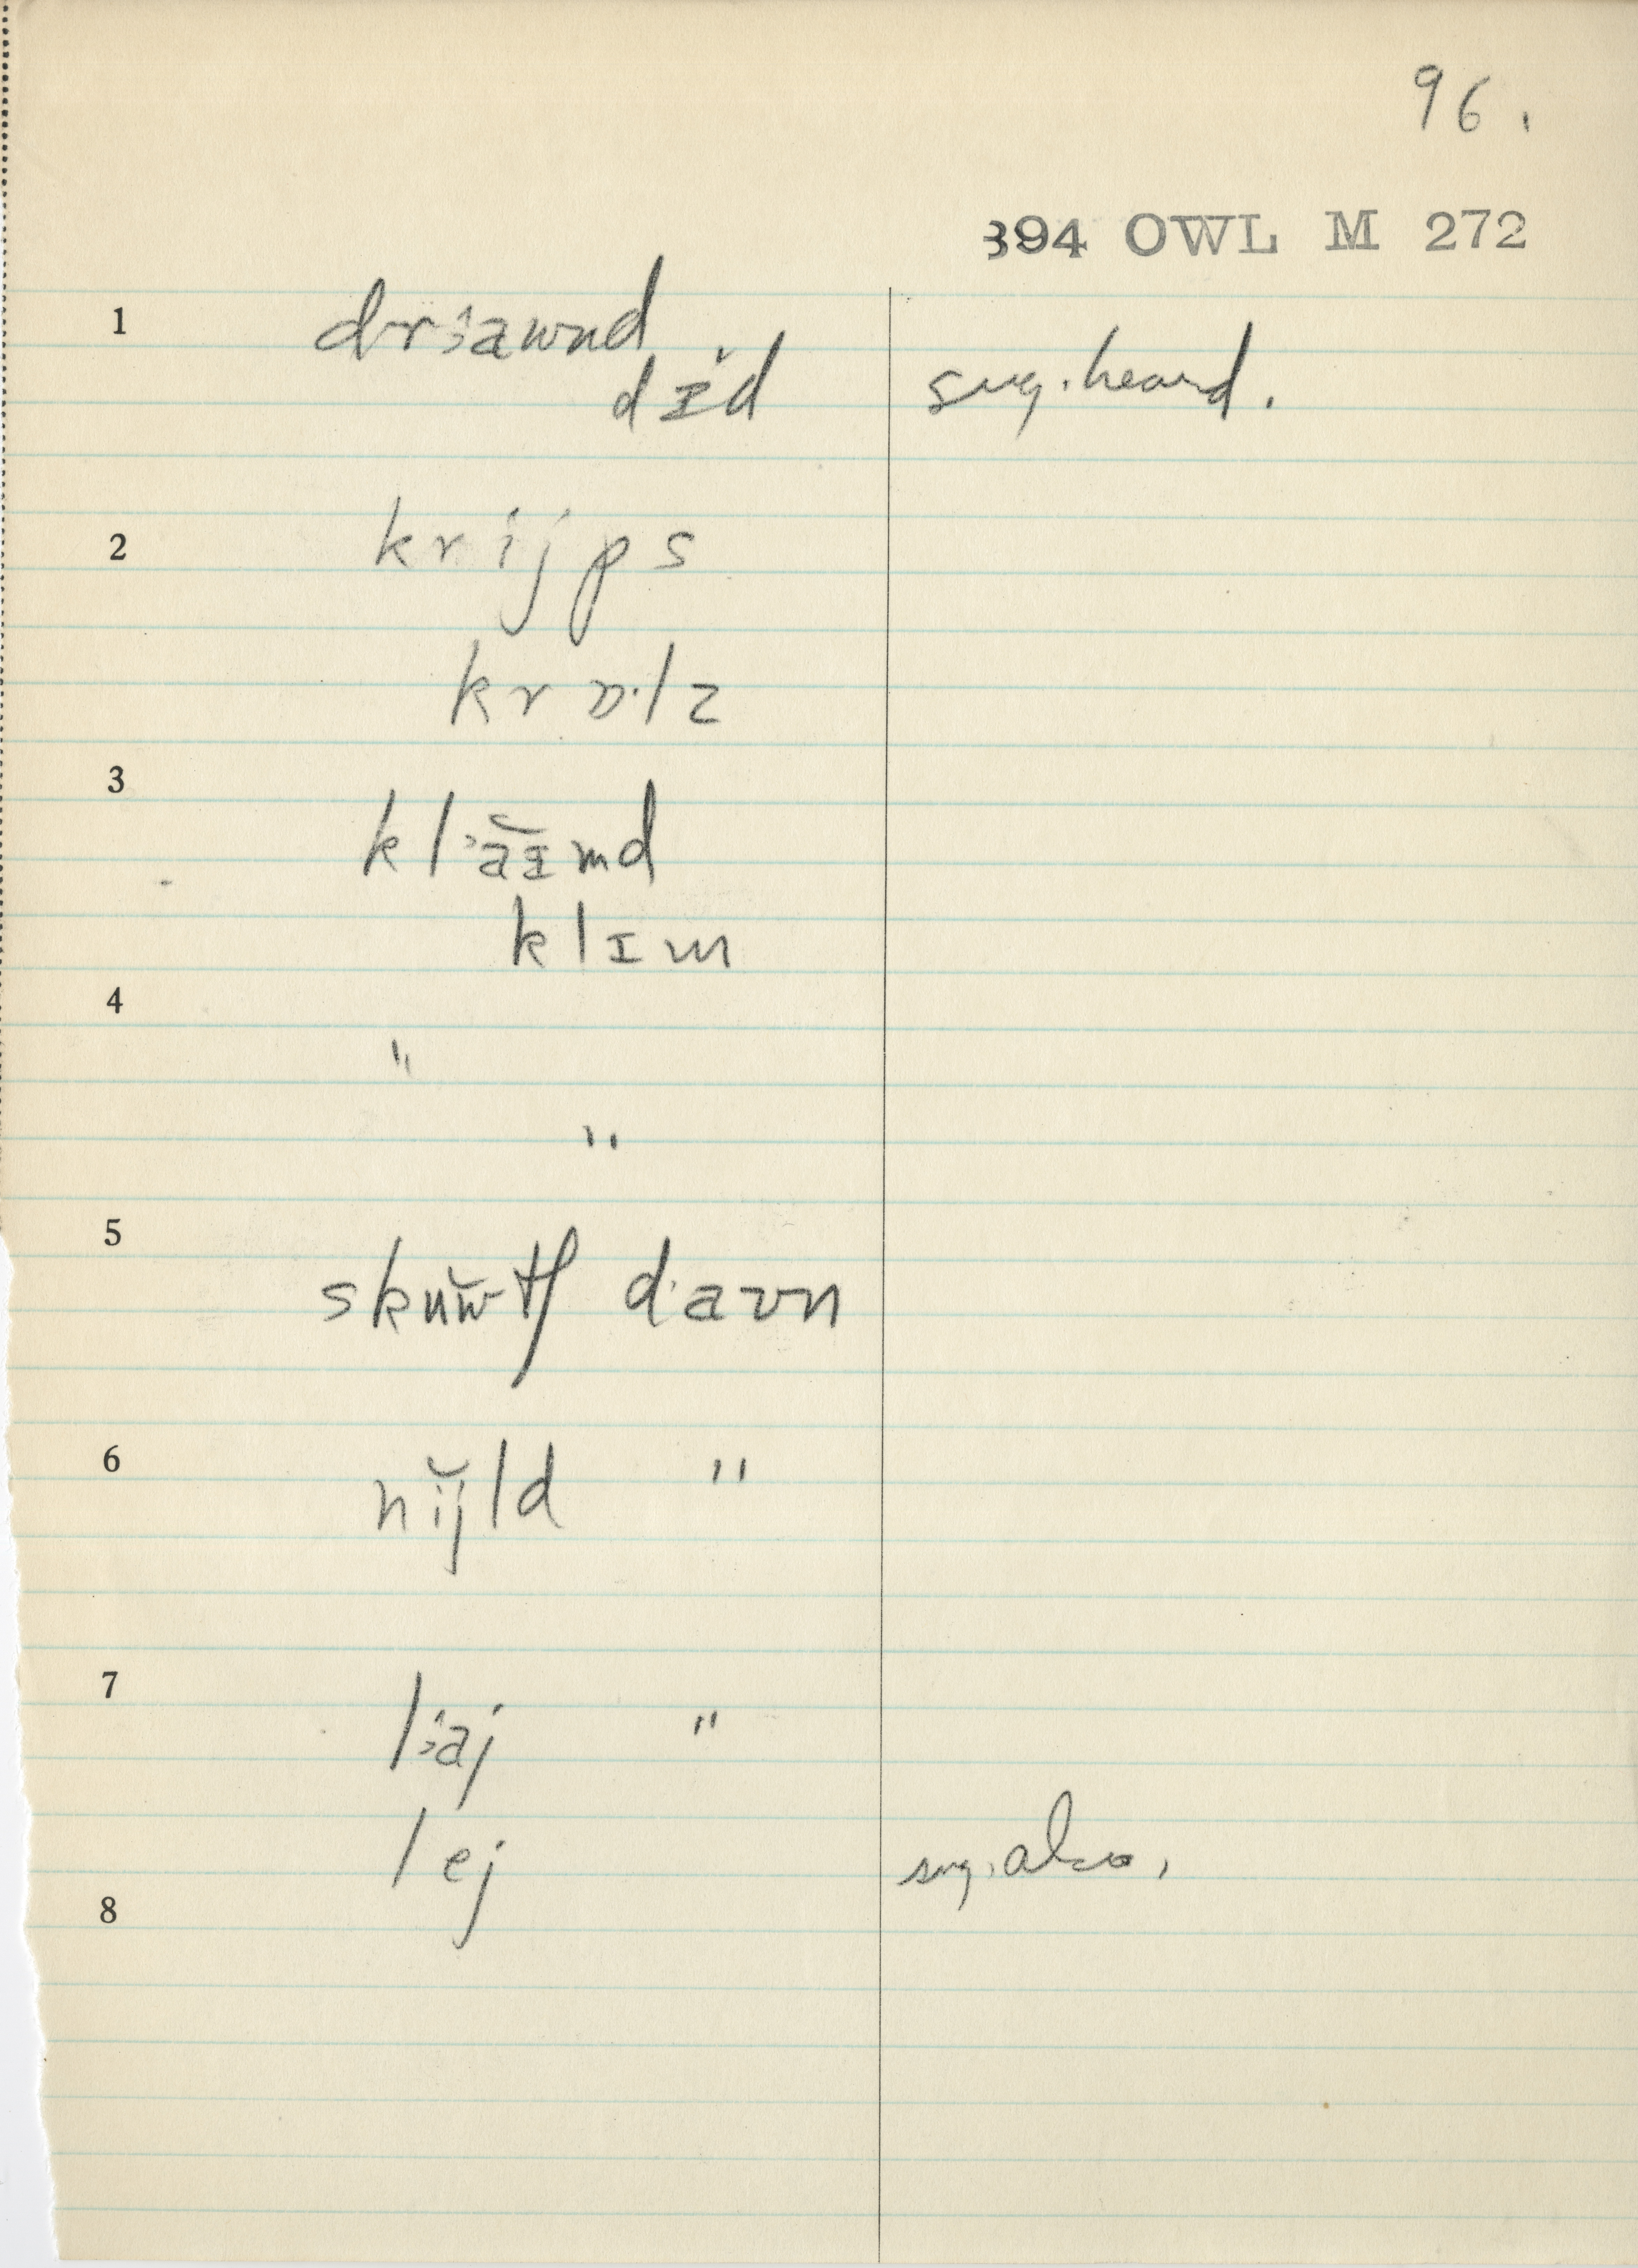 96.
394 OWL M 272
1 drꜟawnd
dɪ̆d sug. heard.
2 krijps
krɒ·lz
3 klꜟaɪ̆md
klɪm
4 "
"
5 skŭw̆tʃ d·aʊn
6 nĭjld "
7 lꜟaj "
lej sug. also.
8